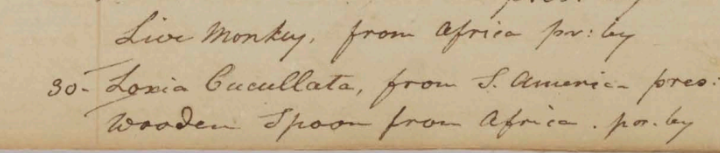 Live Monkey, from Africa pr: by
30- Loxia Cucullata, from S. America pres:
Wooden Spoon from Africa. pr. by